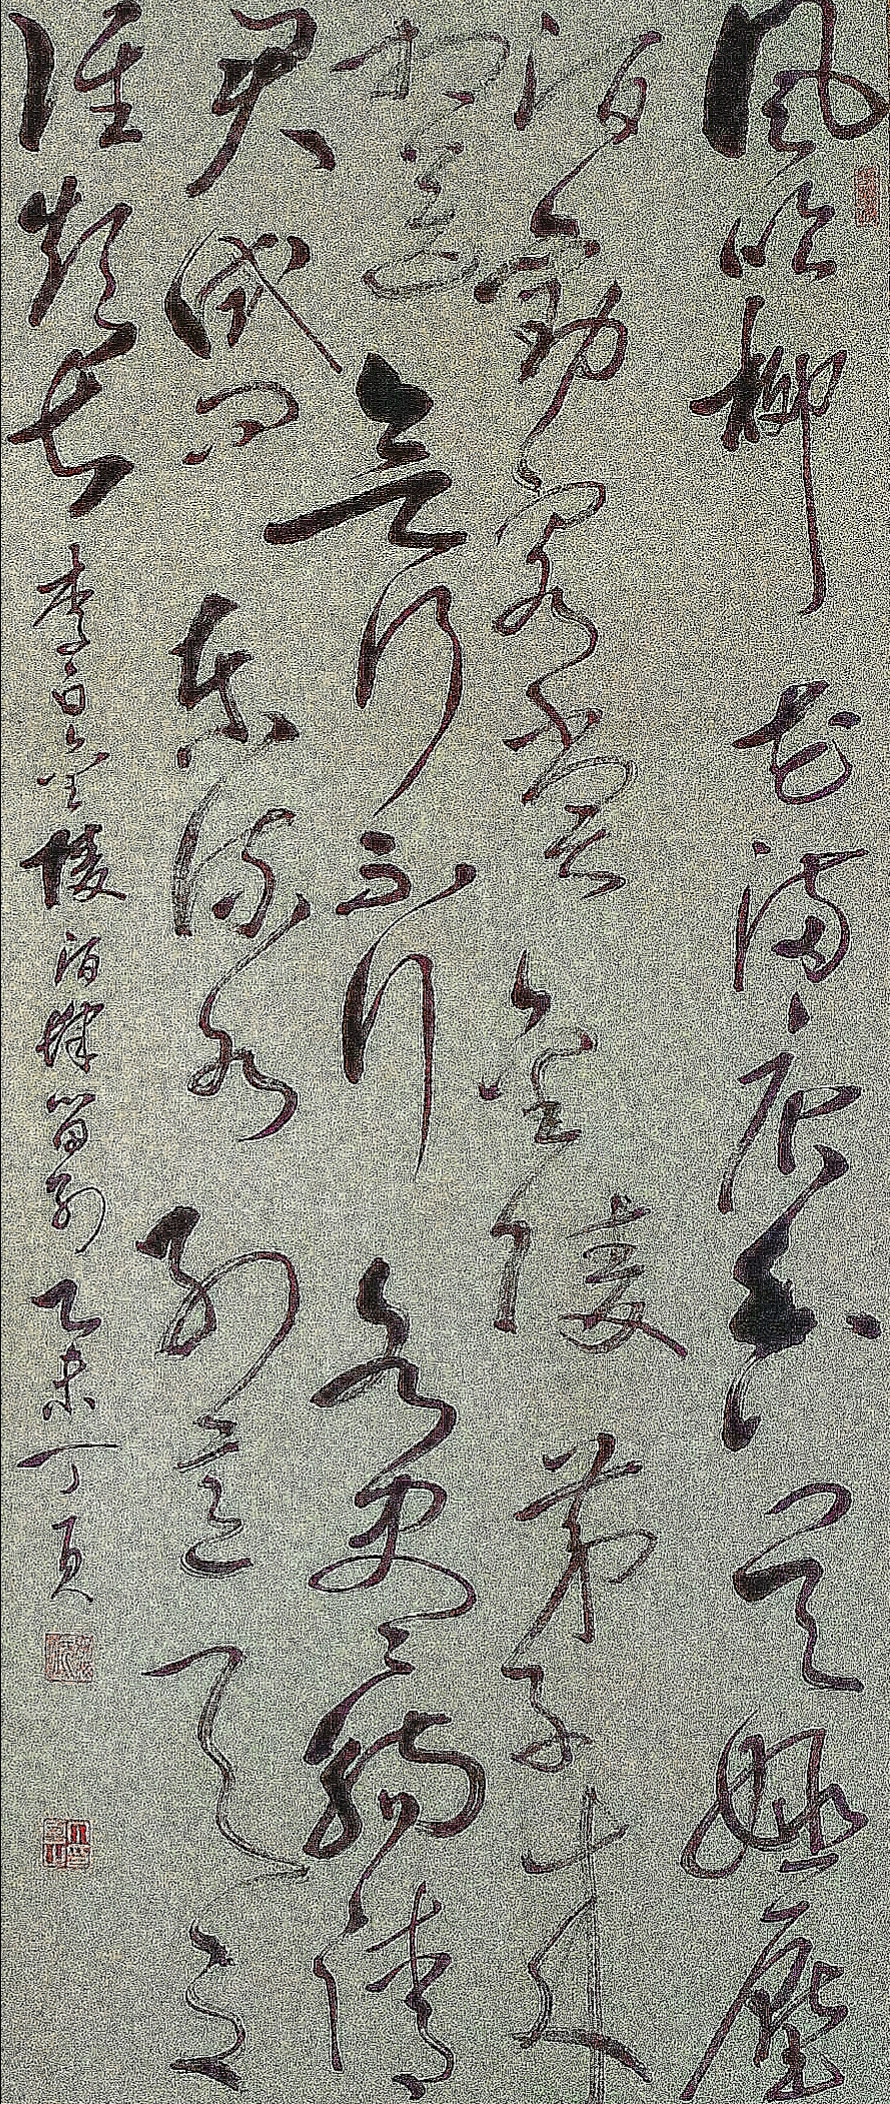 風吹柳花滿店香吳姬壓
酒勸客嘗金陵弟子來
相送欲行不行各盡觴請
君試問東流水別意與之
誰短長李白金陵酒肆留別乙未丁